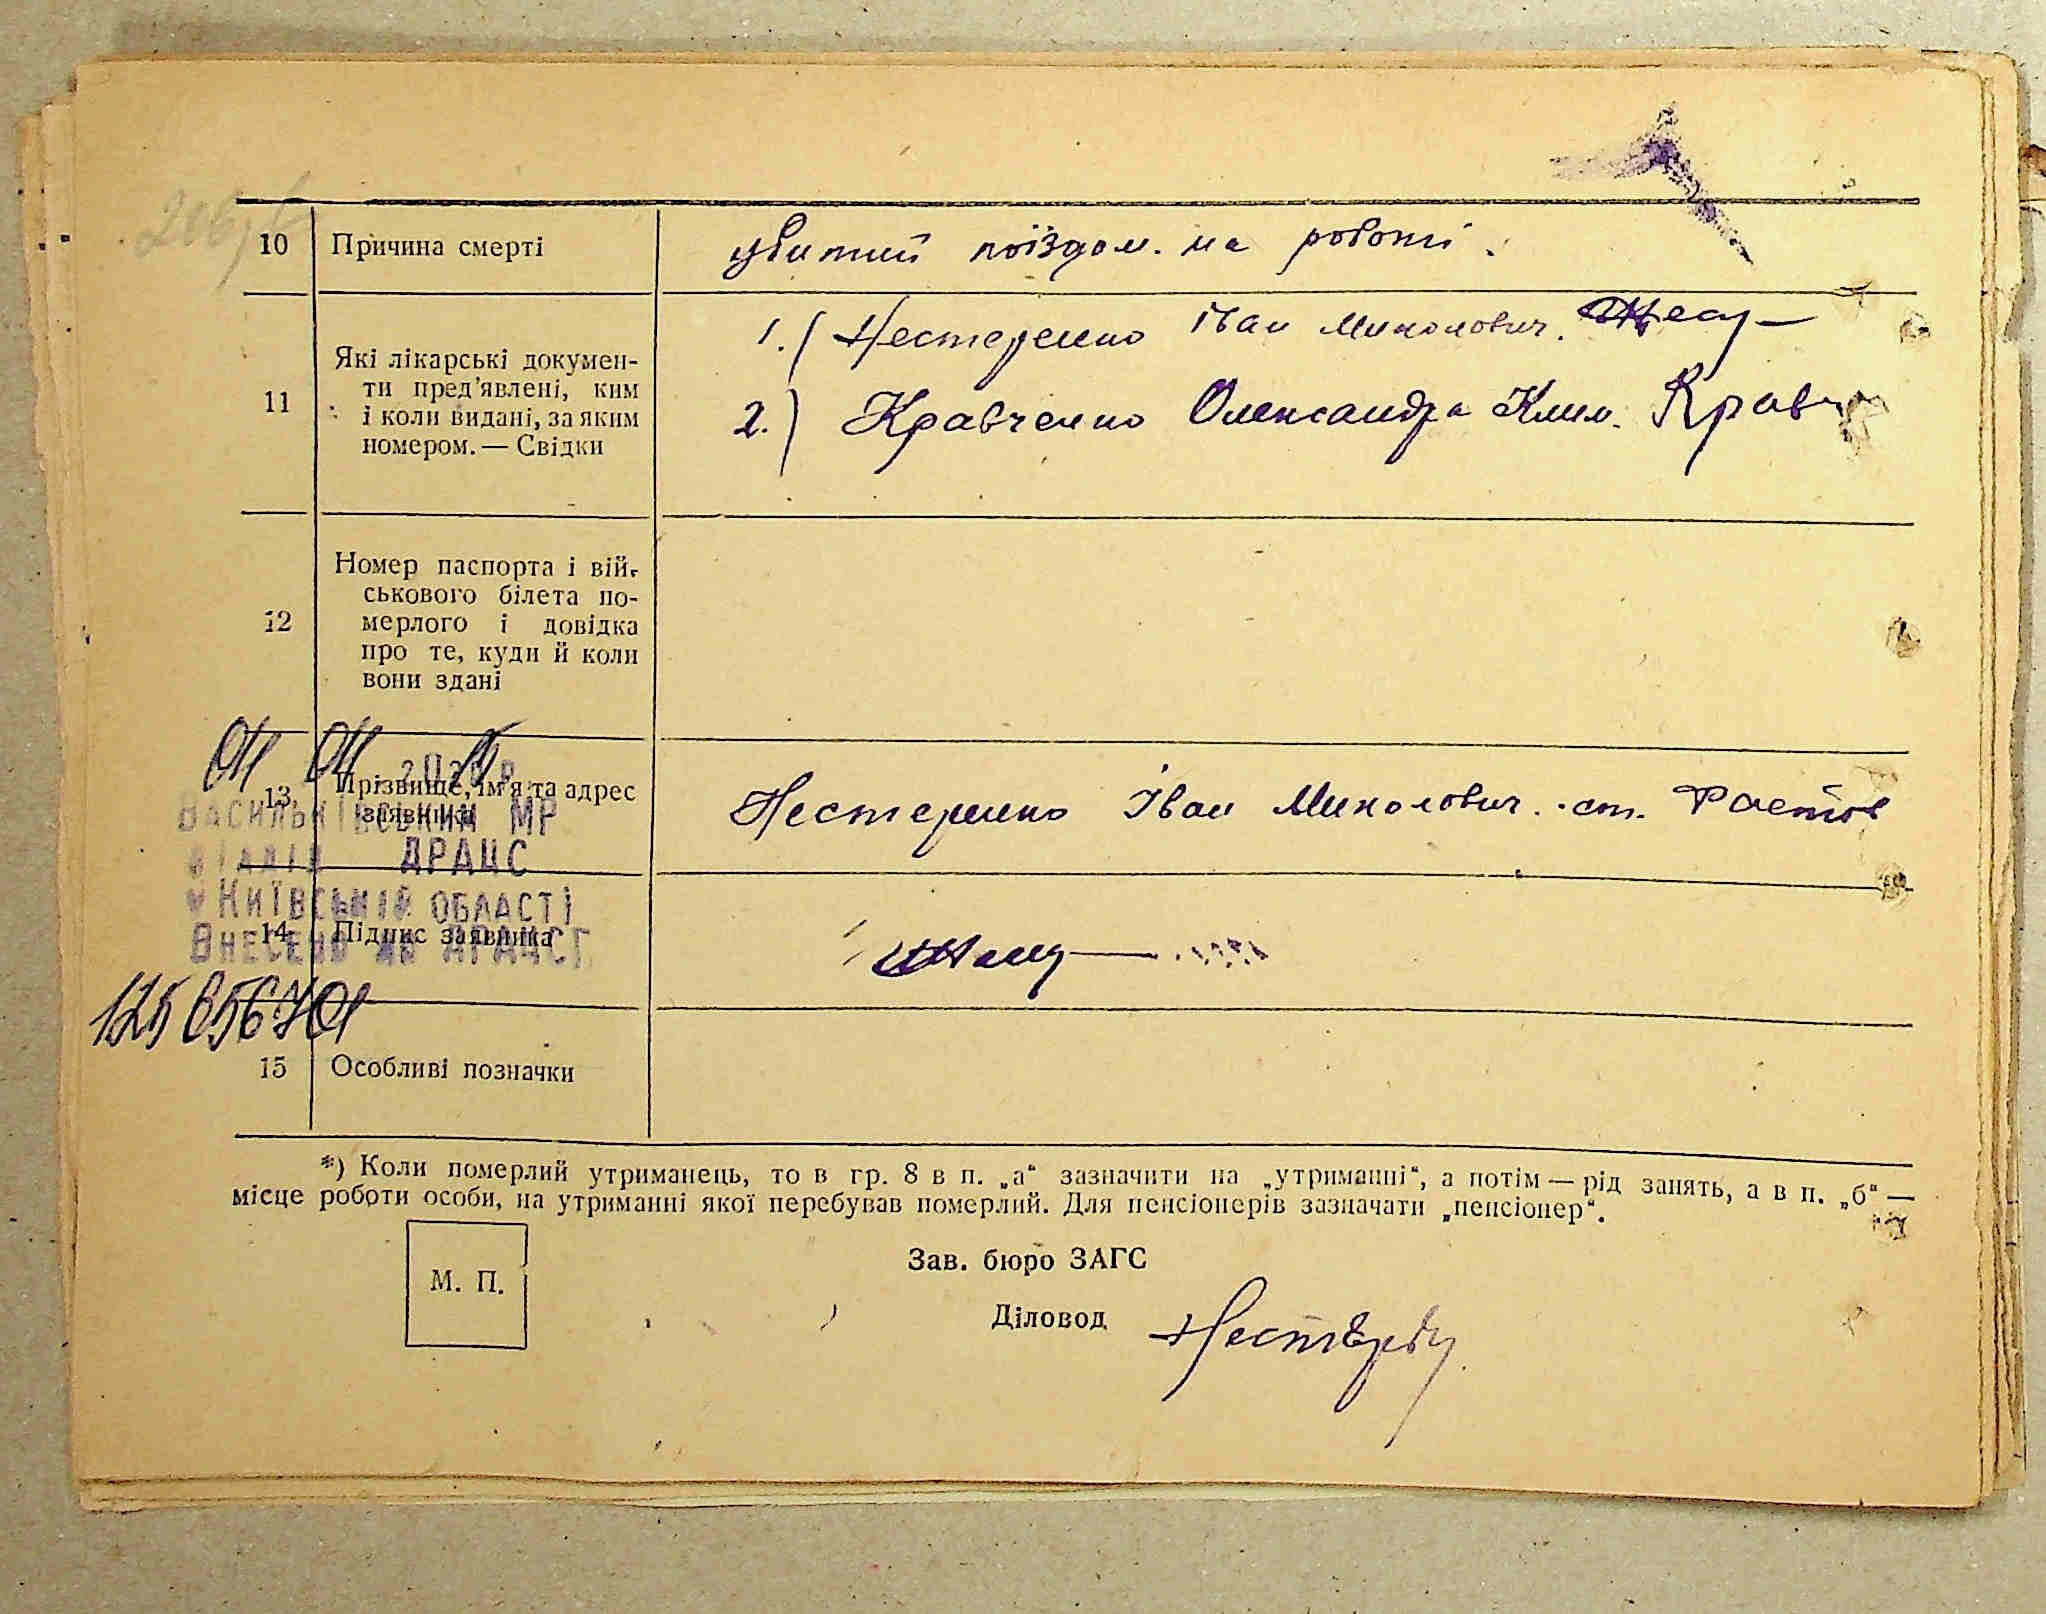 10 Причина смерті убитий поїздом. на роботі.
1.) Нестеренко Іван Миколович.
Які лікарські докумен-
ти пред'явлені, ким
11 і коли видані, за яким 2.) Кравченко Олександра Клим. Кравч
номером. — Свідки
Номер паспорта і вій-
ськового білета по-
12 мерлого і довідка
про те, куди й коли
вони здані
04 04
13 Прізвище, ім'я та адрес Нестеренко Іван Миколович. ст. Фастов
заявника
Васильківським МР
ДРАЦС
Київській області
14 Підпис заявника
Внесено до ДРАЦСГ
15 Особливі позначки
*) Коли померлий утриманець, то в гр. 8 в п. „а“ зазначити на „утриманні“, а потім — рід занять, а в п. „б“ —
місце роботи особи, на утриманні якої перебував померлий. Для пенсіонерів зазначати „пенсіонер“.
М. П.
Зав. бюро ЗАГС
Діловод